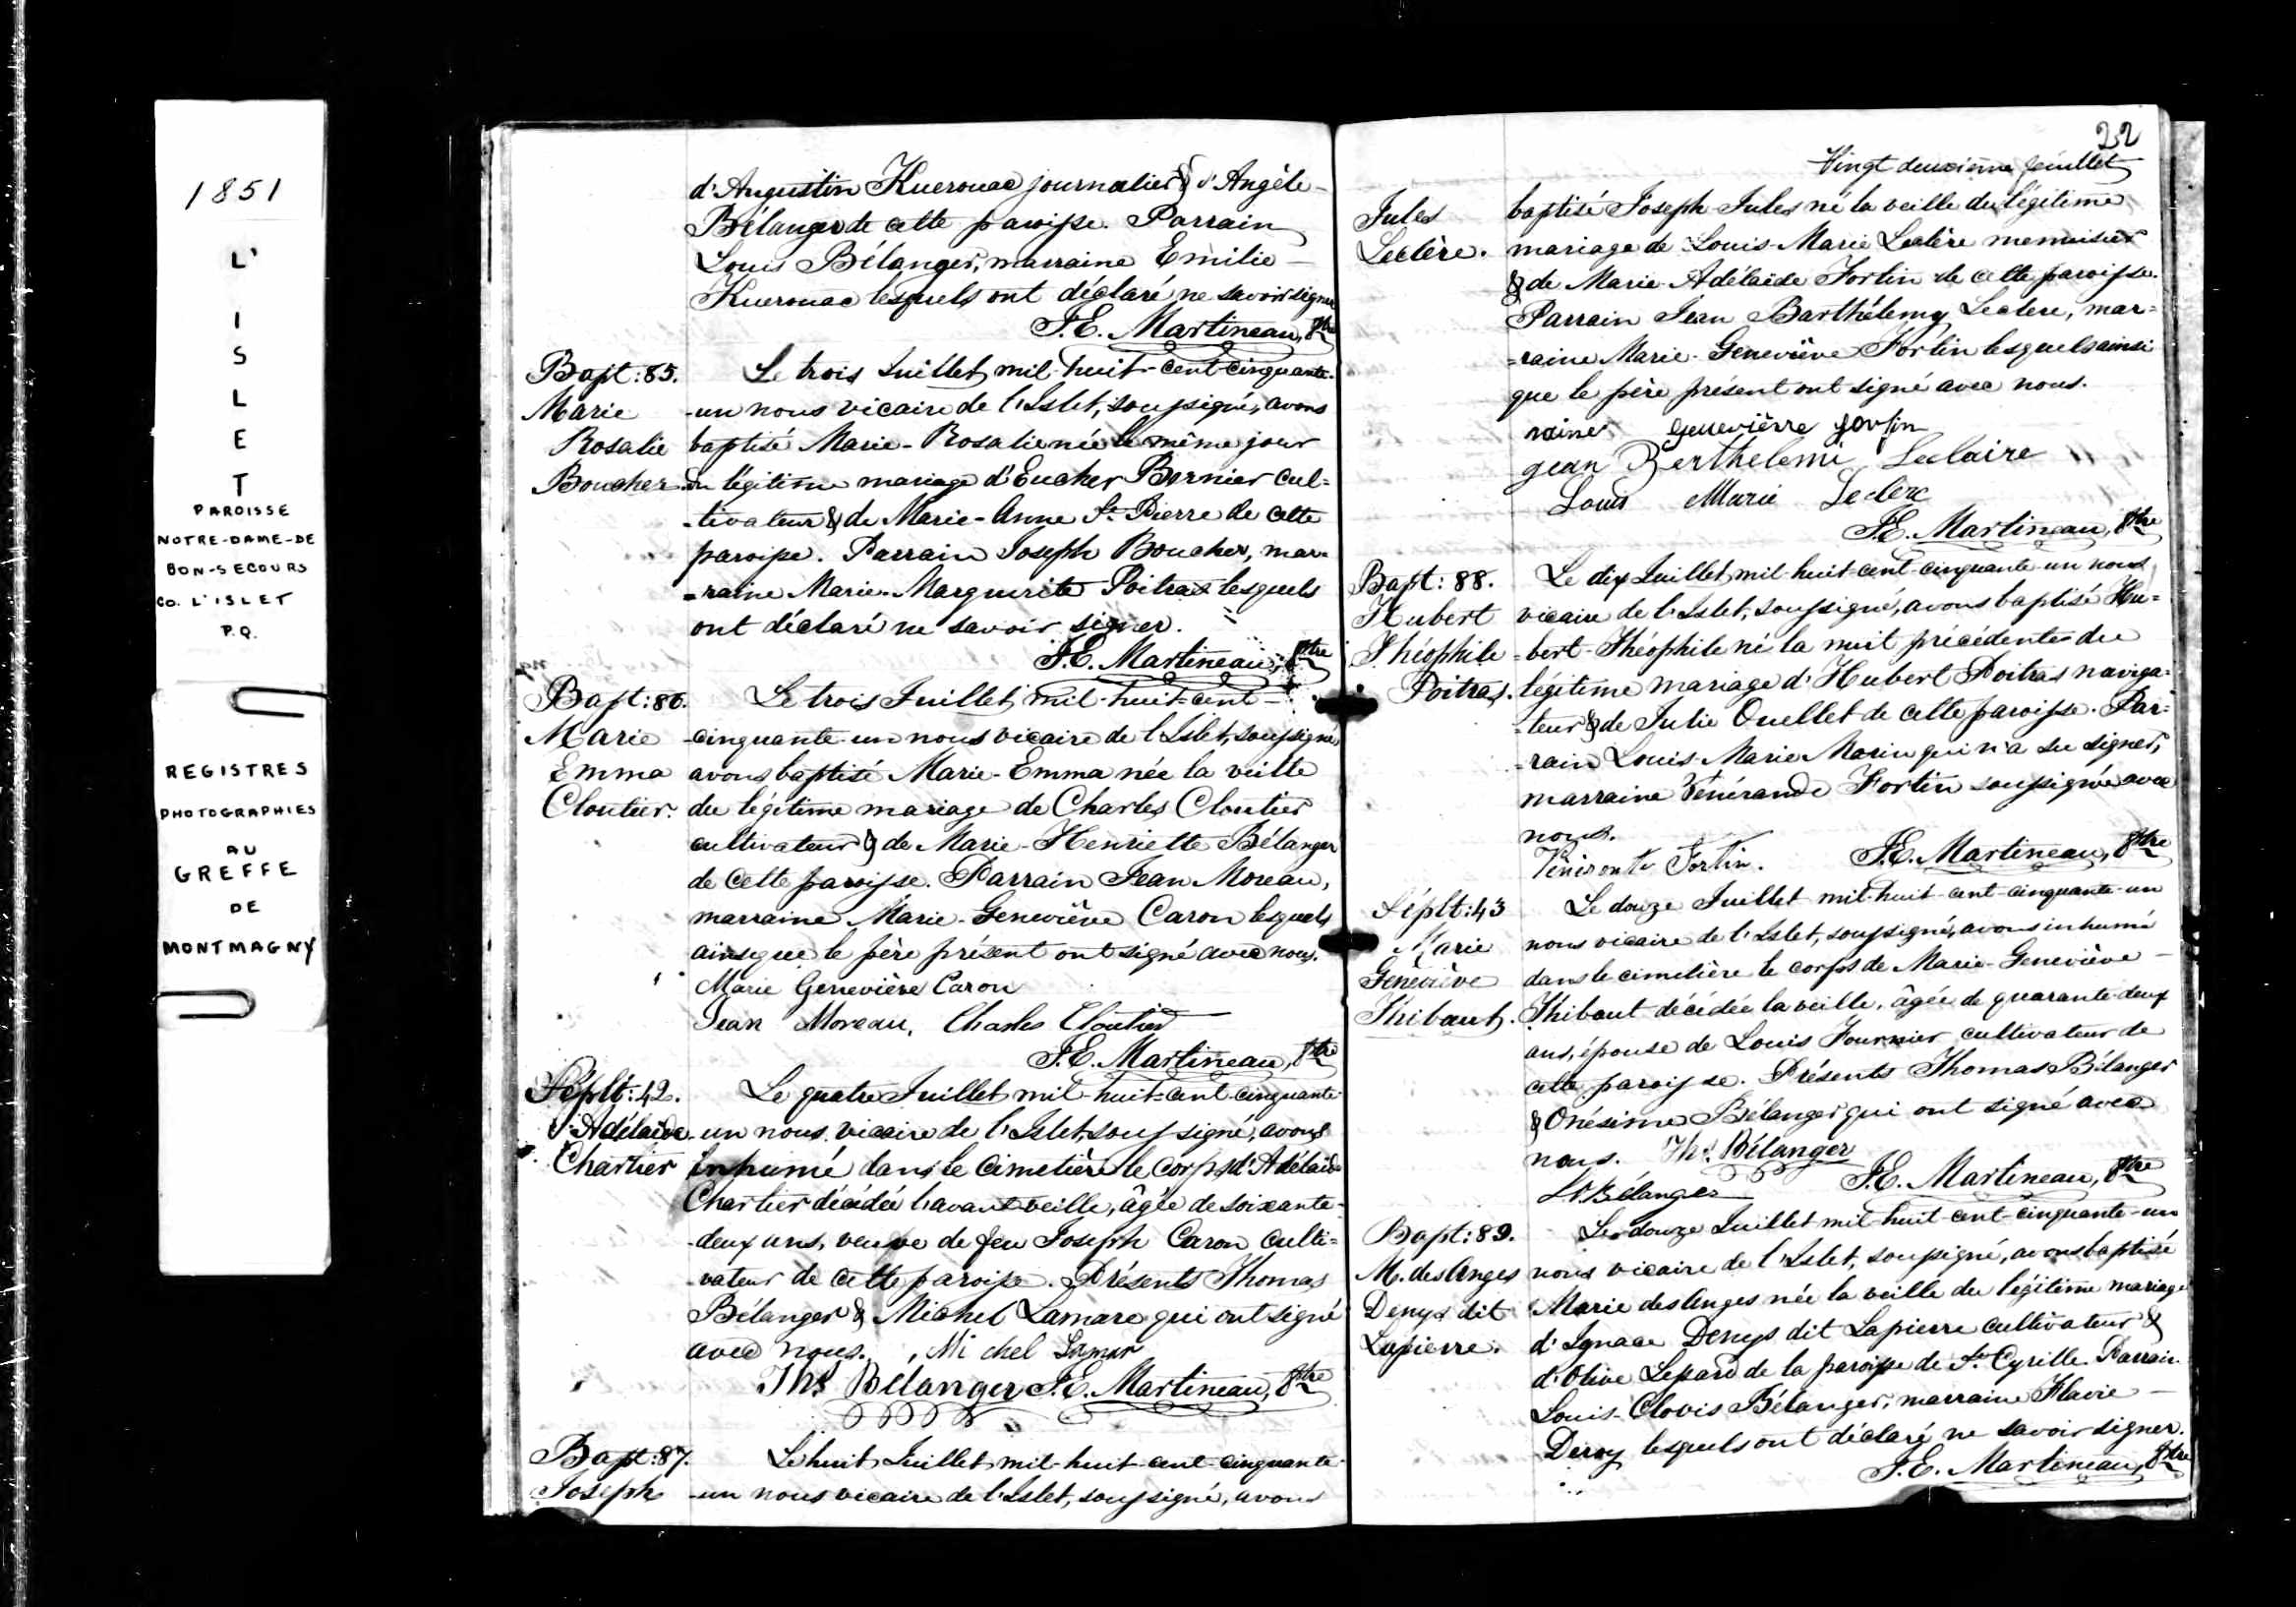 1851
L'
I
S
L
E
T
PAROISSE
NOTRE-DAME-DE
BON-SECOURS
CO. L'ISLET
P.Q.
REGISTRES
PHOTOGRAPHIES
AU
GREFFE
DE
MONTMAGNY
d'Augustin Kuerouac journalier & d'Angèle
Bélanger de cette paroisse. Parrain
Louis Bélanger, marraine Emilie
Kuerouac lesquels ont déclaré ne savoir signer
F.E. Martineau, Ptre
Bapt: 85.
Marie
Rosalie
Boucher
Le trois Juillet mil-huit-cent-cinquante-
-un nous vicaire de l'Islet, soussigné, avons
baptisé Marie-Rosalie née le même jour
du légitime mariage d'Eucher Bernier cul=
-tivateur & de Marie-Anne St. Pierre de cette
paroisse. Parrain Joseph Boucher, mar=
=raine Marie-Marguerite Poitras lesquels
ont déclaré ne savoir signer.
F.E. Martineau, Ptre
Bapt: 86.
Marie
Emma
Cloutier.
Le trois Juillet mil-huit-cent-
-cinquante-un nous vicaire de l'Islet, soussigné,
avons baptisé Marie-Emma née la veille
du légitime mariage de Charles Cloutier
cultivateur & de Marie-Henriette Bélanger
de cette paroisse. Parrain Jean Moreau,
marraine Marie-Geneviève Caron lesquels
ainsi que le père présent ont signé avec nous.
Marie Geneviève Caron
Jean Moreau, Charles Cloutier
F.E. Martineau, Ptre
Séplt: 42.
Adélaïde
Chartier
Le quatre Juillet mil-huit-cent-cinquante-
-un nous vicaire de l'Islet, soussigné, avons
inhumé dans le cimetière le corps d'Adélaïde
Chartier décédée l'avant veille, âgée de soixante-
-deux ans, veuve de feu Joseph Caron culti=
-vateur de cette paroisse. Présents Thomas
Bélanger & Michel Lamare qui ont signé
avec nous. Mi chel Lamar
Ths Bélanger F.E. Martineau, Ptre
Bapt: 87.
Joseph
Le huit Juillet mil-huit-cent-cinquante-
-un nous vicaire de l'Islet, soussigné, avons
22
Vingt deuxième feuillet
Jules
Leclère.
baptisé Joseph Jules né la veille du légitime
mariage de Louis-Marie Leclère menuisier
& de Marie-Adélaïde Fortin de cette paroisse.
Parrain Jean Barthélemy Leclere, mar=
=raine Marie-Geneviève Fortin lesquels ainsi
que le père présent ont signé avec nous.
Genevièvre Fortin
Jean Berthelemi Leclaire
Louis Marie Leclerc
F.E. Martineau, Ptre
Bapt: 88.
Hubert
Théophile
Poitras.
Le dix Juillet mil-huit-cent-cinquante-un nous
vicaire de l'Islet, soussigné, avons baptisé Hu=
=bert-Théophile né la nuit précédente du
légitime mariage d'Hubert Poitras naviga=
-teur & de Julie Ouellet de cette paroisse. Par=
=rain Louis-Marie Morin qui n'a su signer,
marraine Vénérande Fortin soussignée avec
nous.
Fortin. F.E. Martineau, Ptre
Séplt: 43
Marie
Geneviève
Thibaut.
Le douze Juillet mil-huit-cent-cinquante-un
nous vicaire de l'Islet, soussigné, avons inhumé
dans le cimetière le corps de Marie-Geneviève
Thibaut décédée la veille, âgée de quarante-deux
ans, épouse de Louis Fournier cultivateur de
cette paroisse. Présents Thomas Bélanger
& Onésime Bélanger qui ont signé avec
nous. Ths. Bélanger
Bélanger F.E. Martineau, Ptre
Bapt: 89.
M. des Anges
Denys dit
Lapierre.
Le douze Juillet mil-huit-cent-cinquante-un
nous vicaire de l'Islet, soussigné, avons baptisé
Marie des Anges née la veille du légitime mariage
d'Ignace Denys dit Lapierre cultivateur &
d'Olive Lepard de la paroisse de St. Cyrille. Parrain
Louis-Clovis Bélanger, marraine Flavie
Deroy lesquels ont déclaré ne savoir signer.
F.E. Martineau, Ptre